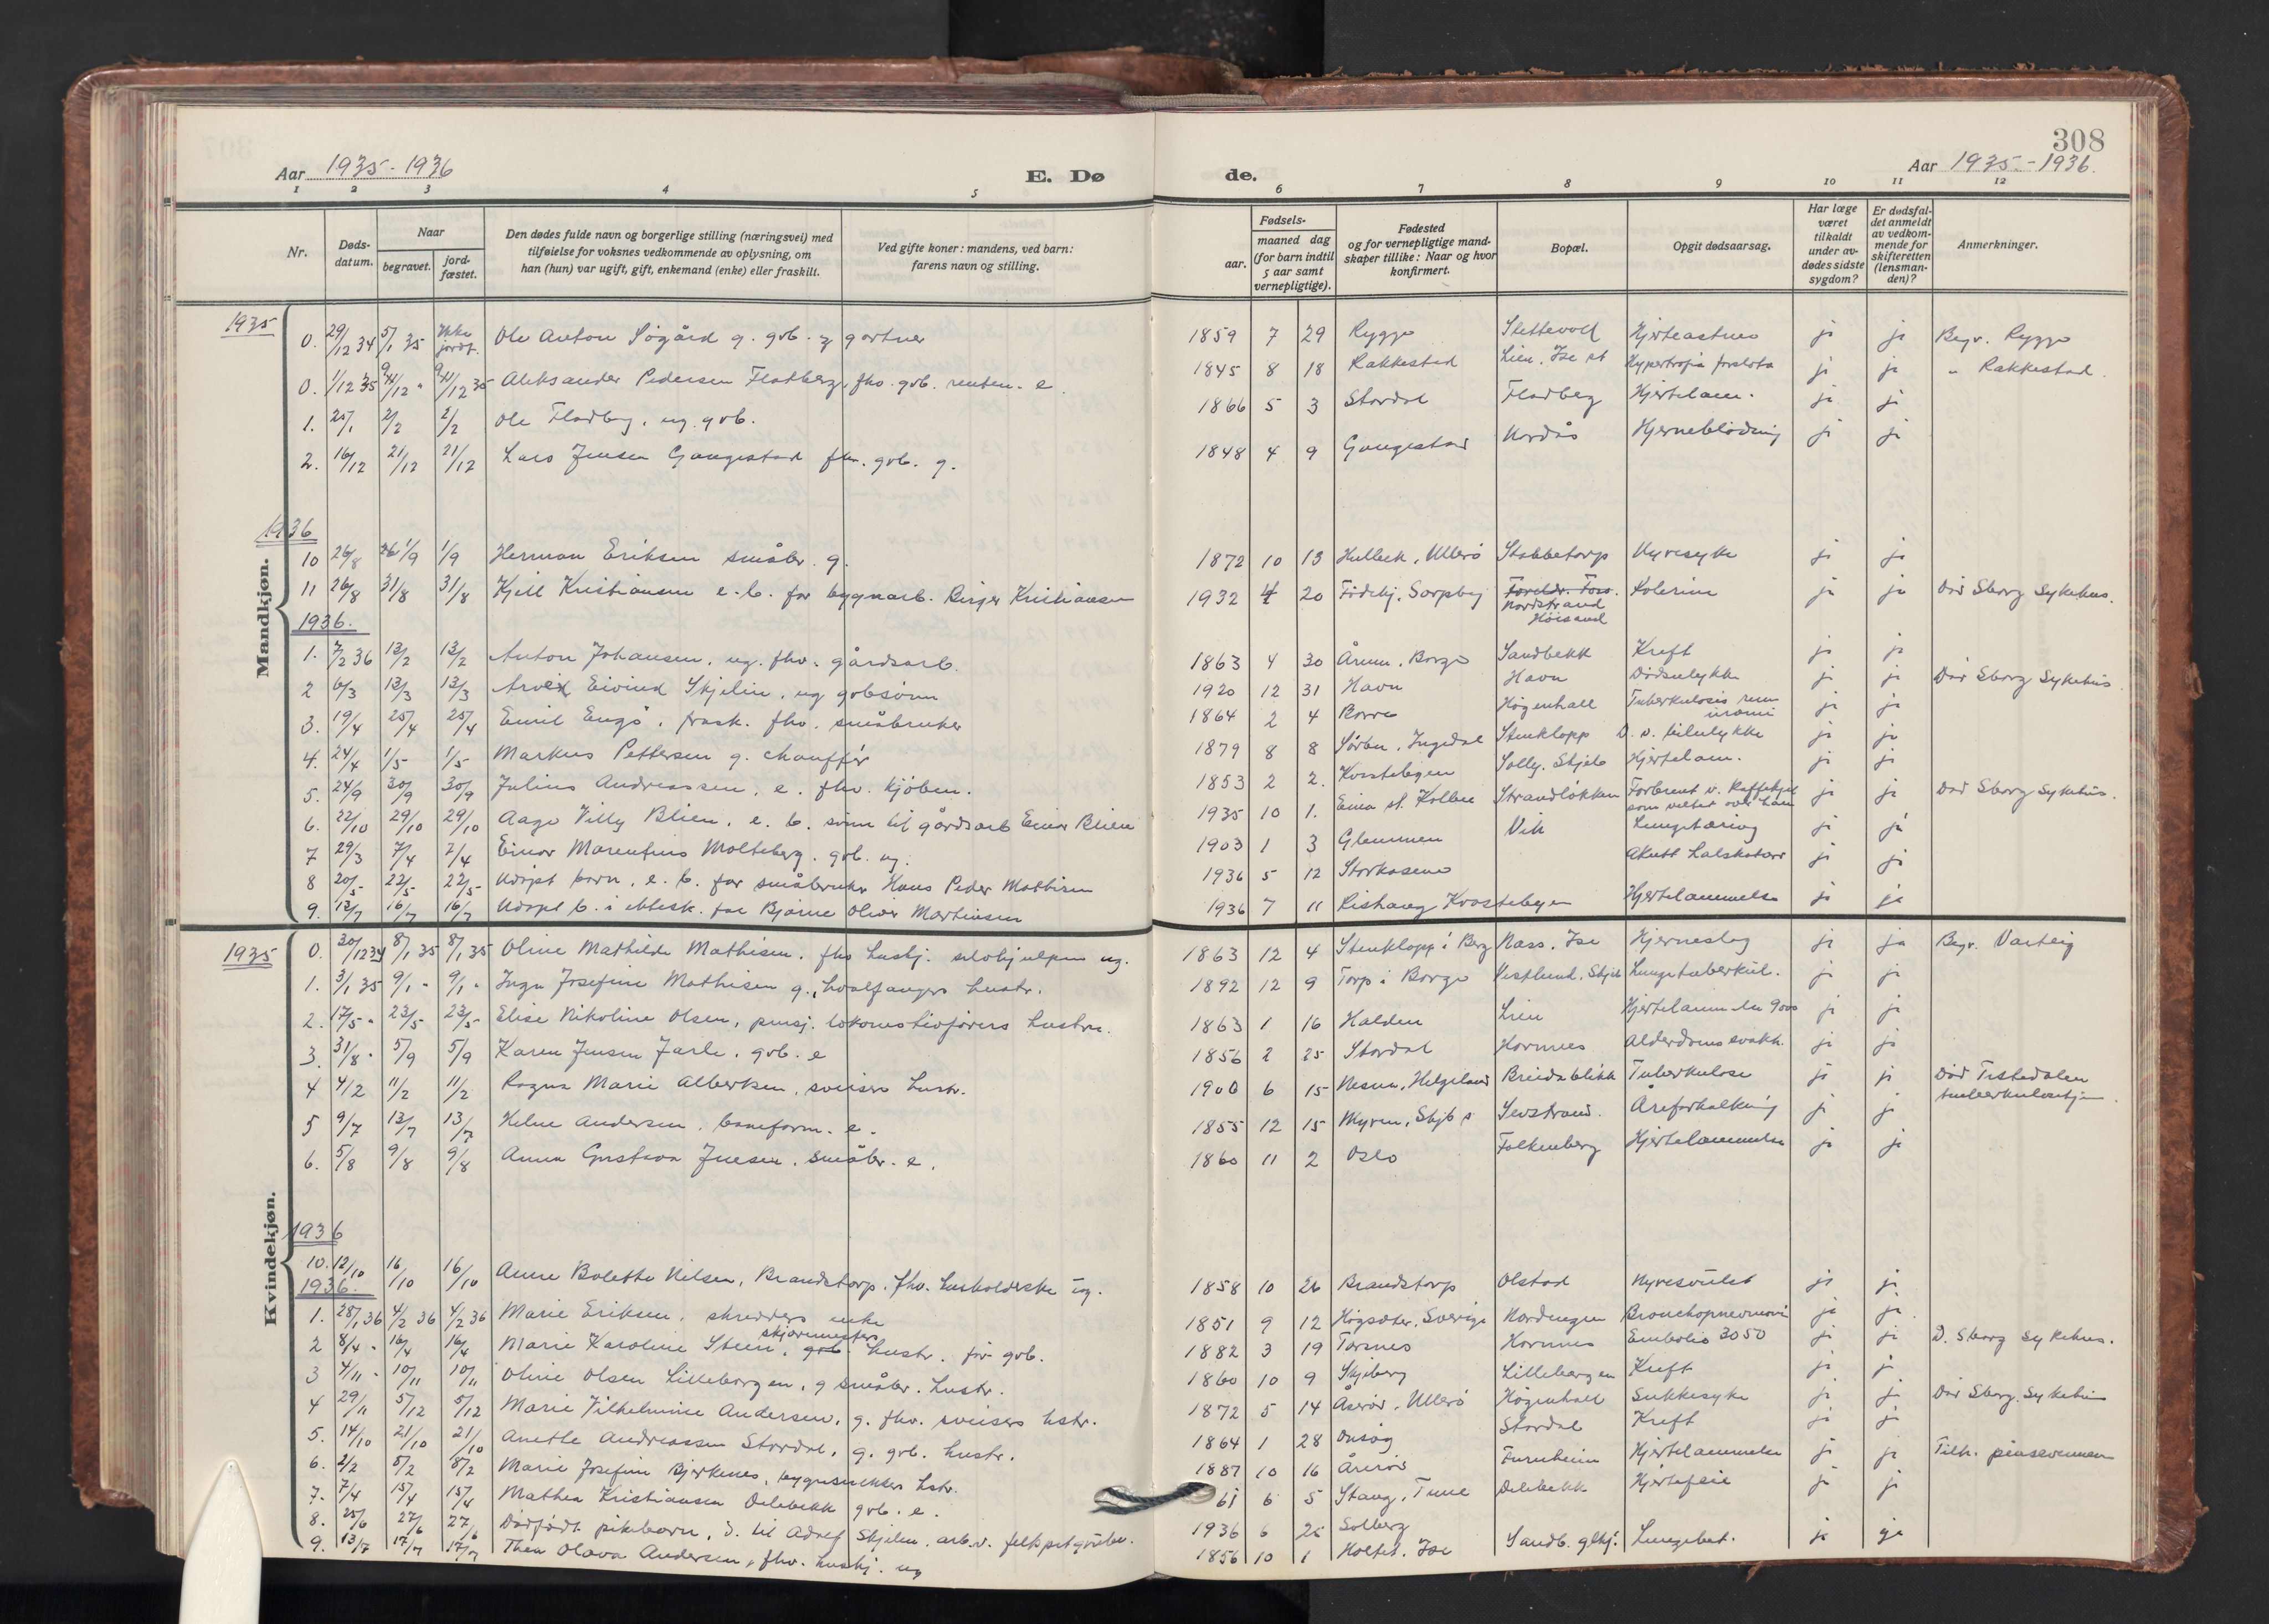 308
Aar 1935-1936
E. Dø
de.
Aar 1935-1936.
1 2 3 4 5 6 7 8 9 10 11 12
Nr.
Døds-
datum.
Naar
begravet.
jord-
fæstet.
Den dødes fulde navn og borgerlige stilling (næringsvei) med
tilføielse for voksnes vedkommende av oplysning, om
han (hun) var ugift, gift, enkemand (enke) eller fraskilt.
Ved gifte koner: mandens, ved barn:
farens navn og stilling.
Fødsels-
aar.
maaned dag
(for barn indtil
5 aar samt
vernepligtige).
Fødested
og for vernepligtige mand-
skaper tillike: Naar og hvor
konfirmert.
Bopæl.
Opgit dødsaarsag.
Har læge
været
tilkaldt
under av-
dødes sidste
sygdom?
Er dødsfal-
det anmeldt
av vedkom-
mende for
skifteretten
(lensman-
den)?
Anmerkninger.
Mandkjøn.
1935
0. 29/12 34 5/1 35 Ikke jordf. Ole Anton Sogård g. gvb. og gartner 1859 7 29 Rygge Slettevold Hjerteastma ja ja Begr. Rygge
0. 1/12 35 Aleksander Pedersen Flatberg, fhv. gvb. renten. e. 1845 8 18 Rakkestad Lien, Ise st Hypertrofia prostata ja ja " Rakkestad.
1. 25/1 2/2 2/2 Ole Fladberg, ug. gvb. 1866 5 3 Stordal Fladberg Hjertelam. ja ja
2. 16/12 21/12 21/12 Lars Jensen Gangestad fhv. gvb. g. 1848 4 9 Gangestad Nordås Hjerneblødning ja ja
1936
10 26/8 1/9 1/9 Herman Eriksen småbr. g. 1872 10 13 Hulbek, Ullerø Stabbetorp Nyresyke ja ja
11 26/8 31/8 31/8 Kjell Kristiansen e. b. far bygnarb. Birger Kristiansen 1932 4 20 Fødehj. Sarpsbg Foreldr. Foss. Kolerine ja ja Død Sborg Sykehus.
Nordstrand
Høisand
1936.
1. 7/2 36 13/2 13/2 Anton Johansen, ug. fhv. gårdsarb. 1863 4 30 Årum, Borge Sandbekk Kreft ja ja
2 6/3 13/3 13/3 Arvid Eivind Skjelin, ug gvbsønn 1920 12 31 Havn Havn Dødsulykke ja ja Død Sborg Sykehus
3. 19/4 25/4 25/4 Emil Engø, frask. fhv. småbruker 1864 2 4 Borre Høgenhall Tuberkulosis ren ja ja
uremi
4. 24/4 1/5 1/5 Markus Pettersen g. chauffør 1879 8 8 Sørbu, Ingedal Stenklopp D. v. bilulykke ja ja
5. 24/9 30/9 30/9 Julius Andreassen, e. fhv. kjøbm. 1853 2 2. Kvastebyen Solly, Skjeb Hjertelam. ja ja
6. 22/10 29/10 29/10 Aage Villy Blien, e. b. sønn til gårdsarb Einar Blien 1935 10 1. Strandløkken Forbrent v. Kaffekjel ja ja Død Sborg Sykehus.
som veltet over ham
7 29/3 7/4 7/4 Einar Marentius Molteberg, gvb. ug. 1903 1 3 Glemmen Vik Lungetæring ja ja
8 20/5 22/5 22/5 Udøpt barn, e. b. far småbruker Hans Peder Mathisen 1936 5 12 Storkasene Akutt Halskatarr ja ja
9. 13/7 16/7 16/7 Udøpt b. i ektesk. far Bjarne Oliver Martinsen 1936 7 11 Rishaug Kvastebyen Hjertelammelse ja ja
Kvindekjøn.
1935
0. 30/12 34 8/1 35 8/1 35 Oline Mathilde Mathisen, fhv hushj. selvhjulpen ug. 1863 12 4 Stenklopp i Berg Næss, Ise Hjerneslag ja ja Begr. Varteig
1. 3/1 35 9/1 - 9/1 - Inga Josefine Mathisen g., hvalfangers hustr. 1892 12 9 Torp i Borge Vestlund, Skjeb Lungetuberkul. ja ja
2. 17/5 - 23/5 23/5 Elise Nikoline Olsen, pensj. lokomotivførers hustru. 1863 1 16 Halden Lien Hjertelammelse 9000 ja ja
3. 31/8 - 5/9 5/9 Karen Jensen Jarle, gvb. e 1856 2 25 Stordal Hornnes Alderdomssvakh. ja ja
4 4/2 11/2 11/2 Ragna Marie Albertsen, sveisers hustr. 1900 6 15 Nesna, Helgeland Breidablikk Tuberkulose ja ja Død Tistedalen
tuberkulosehj.
5 9/7 13/7 13/7 Helene Andersen, baneform. e. 1855 12 15 Myren, Skjb s Sevstrand. Åreforkalkning ja ja
6. 5/8 9/8 9/8 Anna Gustava Jensen, småbr. e. 1860 11 2 Oslo Falkenberg Hjertelammelse ja ja
1936
10. 12/10 16/10 16/10 Anne Bolette Nilsen, Brandstorp, fhv. husholderske ug. 1858 10 26 Brandstorp Olstad Nyresvulst ja ja
1936.
1. 28/1 36 4/2 36 4/2 36 Marie Eriksen, skredders enke 1851 9 12 Høgsæter, Sverige Nordengen Bronchopnevmoni ja ja
skjærmesters
2 8/4 - 16/4 16/4 Marie Karoline Steen, gvb. hustr. før gvb. 1882 3 19 Torsnes Hornnes Embolio 3050 ja ja D. Sborg Sykehus.
3 4/11 - 10/11 10/11 Oline Olsen Lilleborgen, g småbr. hustr. 1860 10 9 Skjeberg Lilleborgen Kreft ja ja
4 29/11 5/12 5/12 Marie Vilhelmine Andersen, g. fhv. sveisers hstr. 1872 5 14 Åserød, Ullerø Høgenhall Sukkesyke ja ja Død Sborg. Sykehus
5. 14/10 21/10 21/10 Anette Andreassen Stordal, g. gvb. hustr. 1864 1 28 Onsøy Stordal Kreft ja ja
6. 2/2 8/2 8/2 Marie Josefine Bjerkenes, bygnsnekkers hstr. 1887 10 16 Årerød Furuheim Hjertelammelse ja ja Tilh. pinsevennene
7. 7/4 15/4 15/4 Mathea Kristiansen Delebekk gvb. e. 61 6 5 Stang, Tune Delebekk Hjertefeil ja ja
8. 25/6 27/6 27/6 Dødfødt pikebarn, d. til Adolf Skjelin, arb. v. feltspatgrube. 1936 6 25 Solberg
9. 13/7 17/7 17/7 Thea Olava Andersen, fhv. hushj. ug 1856 10 1 Holtet, Ise Sandb. glhj. Lungebet. ja ja